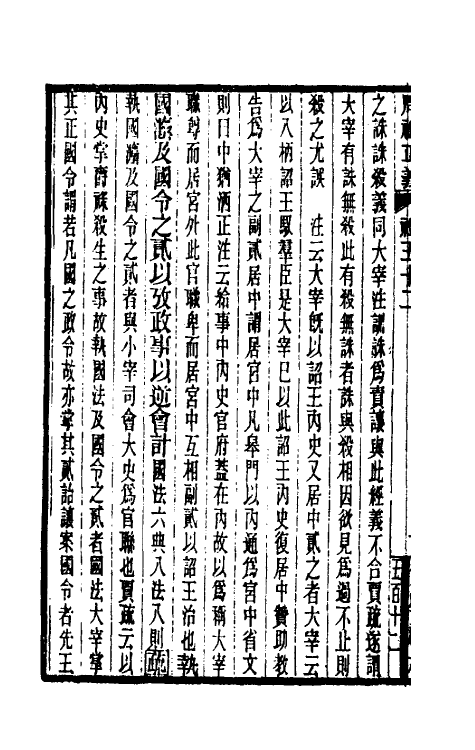 周禮正義 卷五十二
之誅誅殺義同大宰注訓誅爲責讓與此經義不合賈疏遂謂
大宰有誅無殺此有殺無誅者誅與殺相因欲見爲過不止則
殺之尤誤 注云大宰既以詔王內史又居中貳之者大宰云
以八柄詔王馭羣臣是大宰已以此詔王內史復居中贊助敎
告爲大宰之副貳居中謂居宮中凡皋門以內通爲宮中省文
則曰中猶酒正注云給事中內史官府蓋在內故以爲稱大宰
職尊而居宮外此官職卑而居宮中互相副貳以詔王治也執
國灋及國令之貳以攷政事以逆會計國法六典八法八則疏
執國灋及國令之貳者與小宰司會大史爲官聯也賈疏云以
內史掌爵祿殺生之事故執國法及國令之貳者國法大宰掌
其正國令謂若凡國之政令故亦掌其貳詒讓案國令者先王
五百十二